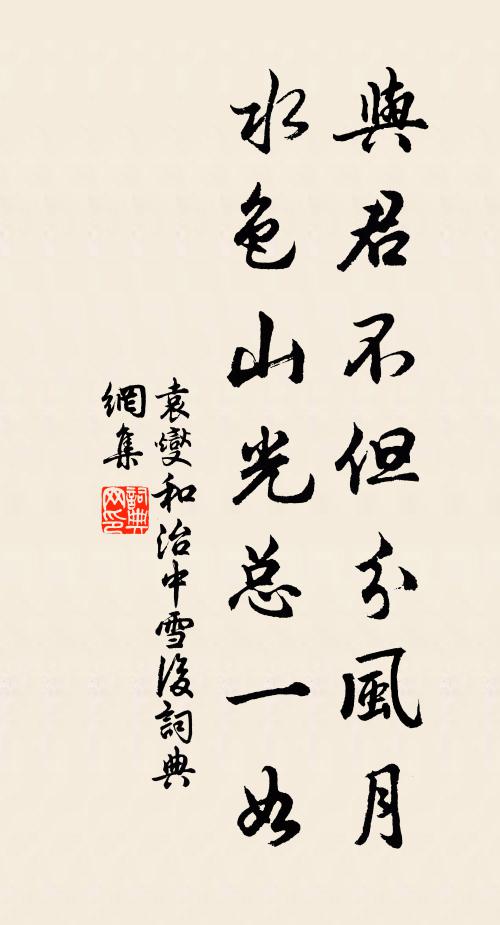 與君不但分風月
水色山光总一如
袁燮和治中雪後詞典
網集
詞典網印